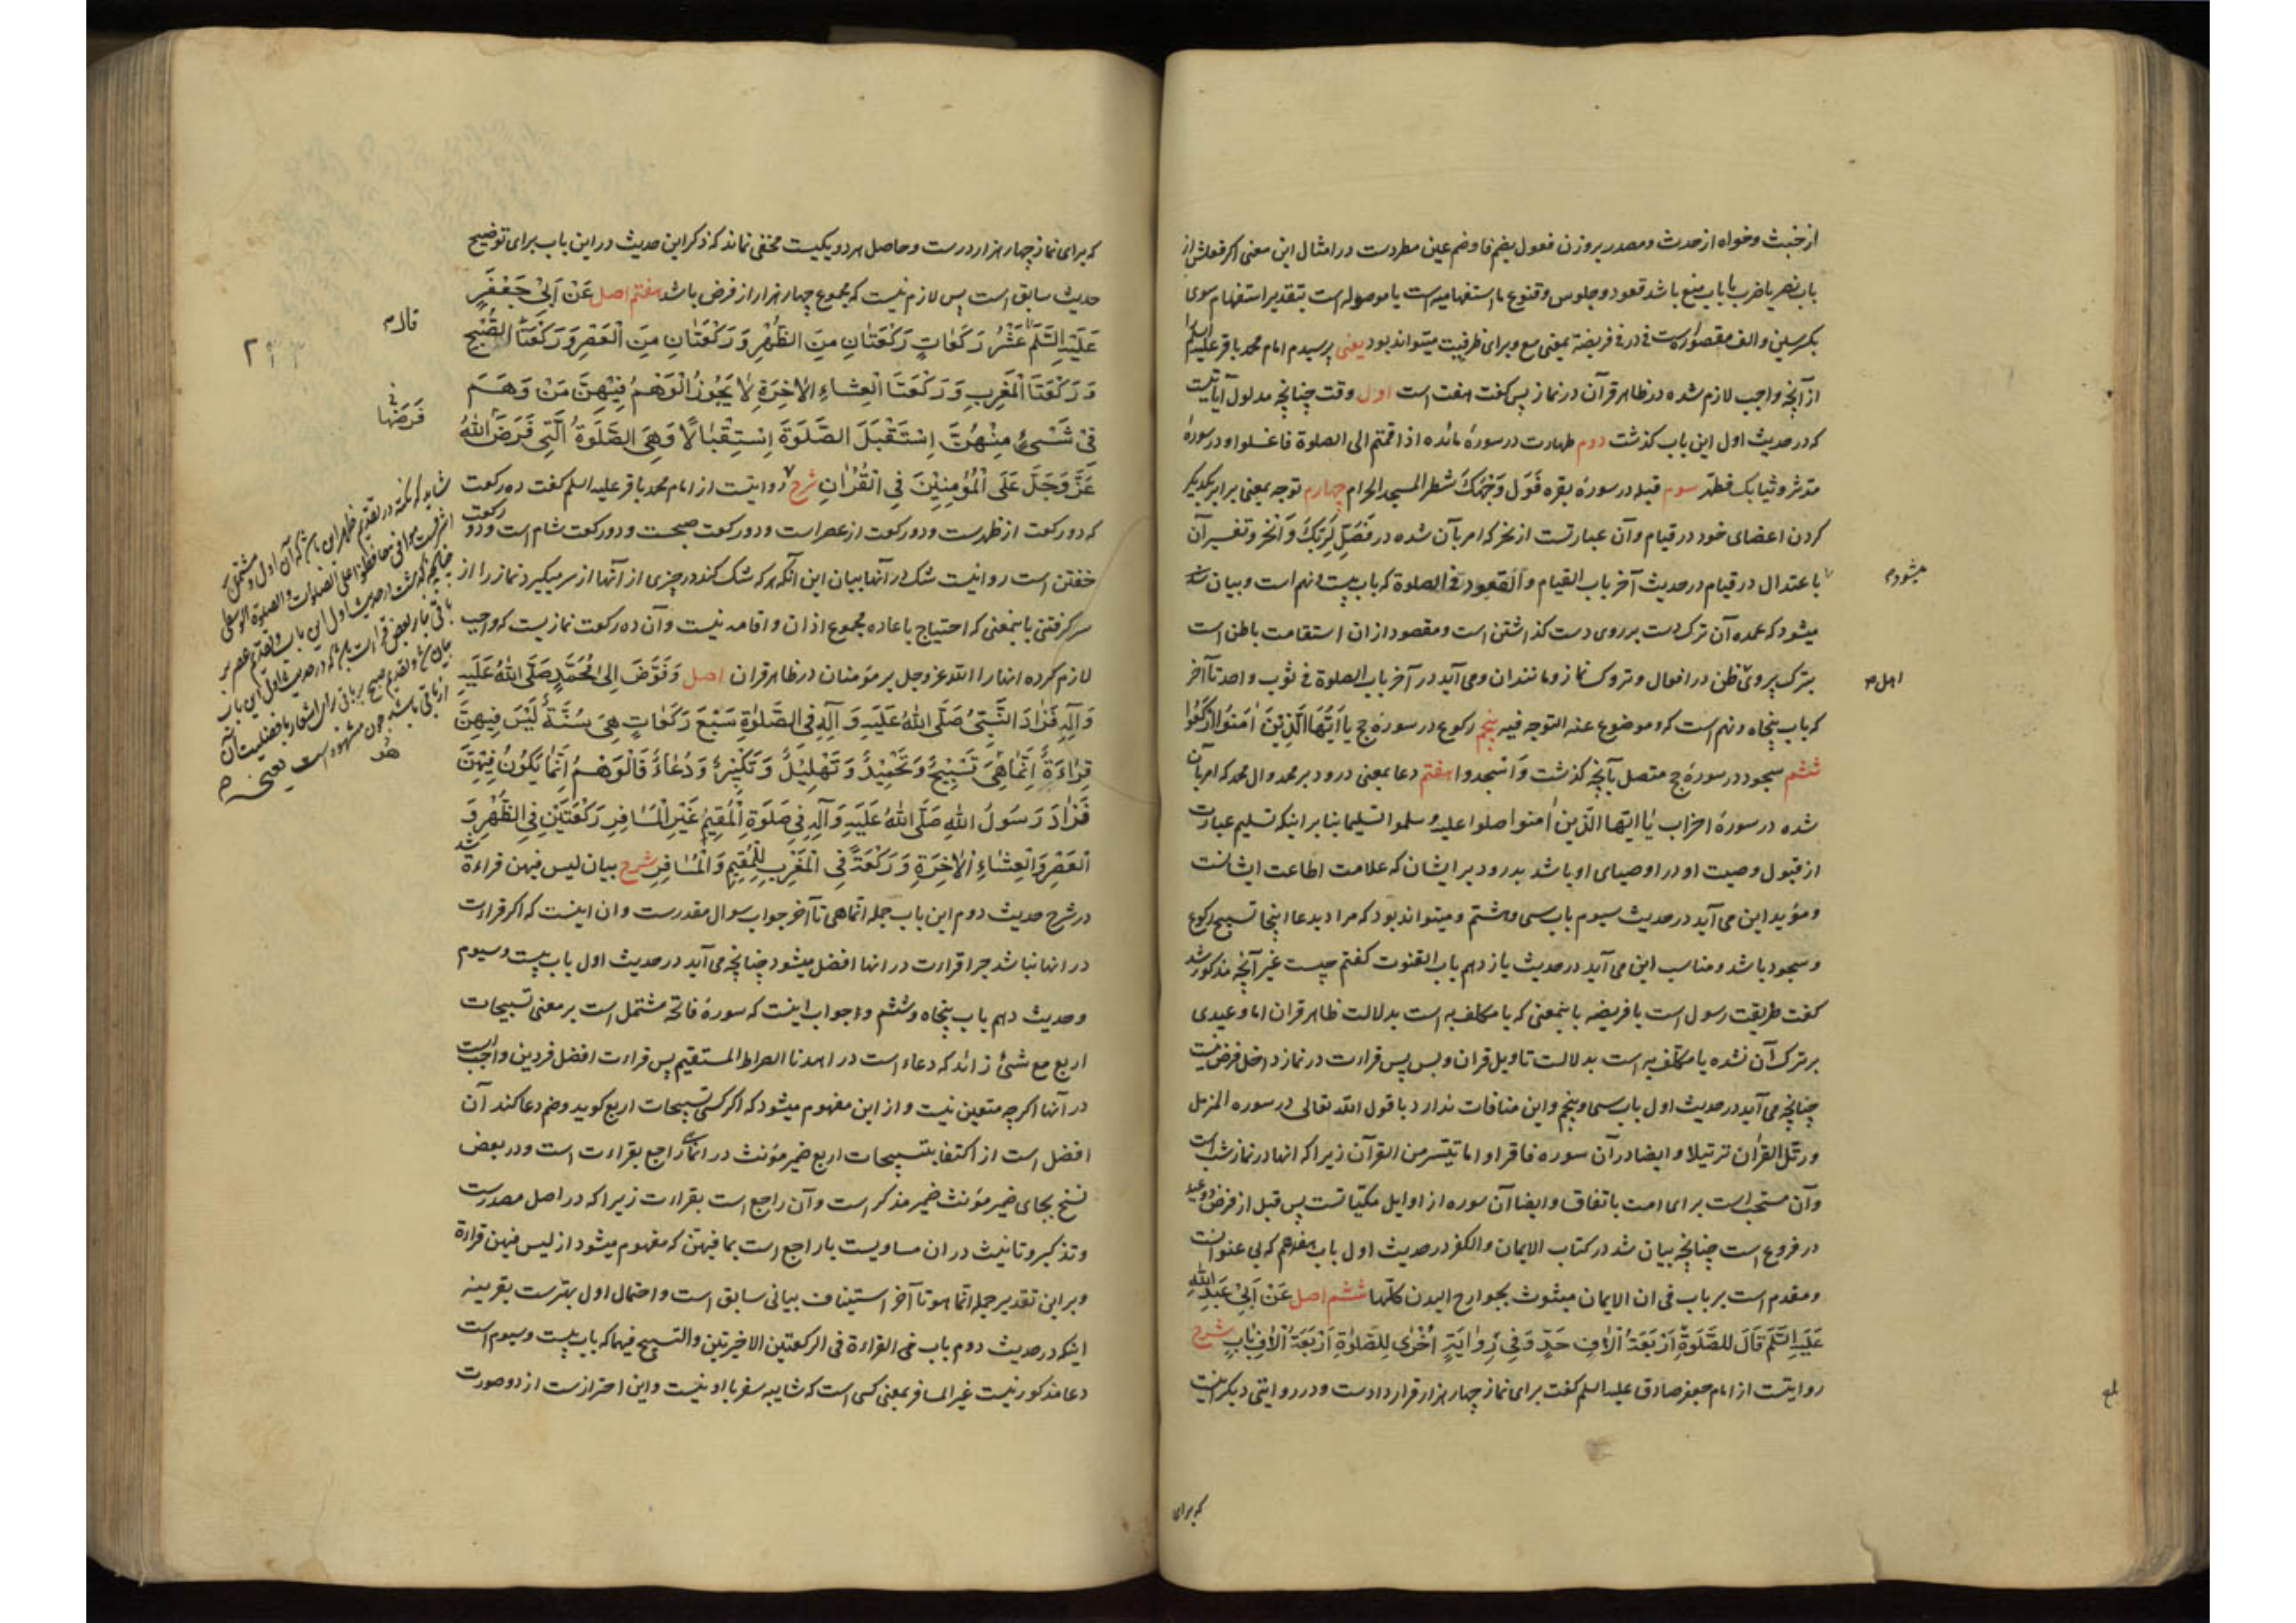 از خبث و خواه از حدث و مصدر بر وزن فعول بضم فا و ضم عین مطردست در امثال این معنی اکر فعلش از
باب نصر یا ضرب یا باب منع باشد قعود و جلوس و قنوع ما استفهامیه است یا موصوله است بتقدیر استفهام سوی
بکسر سین و الف مقصوره است فی در فی فریضة بمعنی مع و برای ظرفیت میتواند بود یعنی پرسیدم امام محمد باقر علیه السلام
از آنچه واجب لازم شده در ظاهر قرآن در نماز پس کفت هفت است اول وقت چنانچه مدلول آیاتیست
که در حدیث اول این باب کذشت دوم طهارت در سورهٔ مائده اذا قمتم الی الصلوة فاغسلوا و در سورهٔ
مدثر و ثیابک فطهّر سوم قبله در سورهٔ بقره فَوَلِّ وَجْهَكَ شطر المسجد الحرام چهارم توجه بمعنی برابر یکدیکر
کردن اعضای خود در قیام و آن عبارتست از نحر که امر بآن شده در فَصَلِّ لِرَبِّكَ وَانْحَرْ و تفسیر آن
با عتدال در قیام در حدیث آخر باب القیام و القعود فی الصلوة که باب بیست و نهم است و بیان
میشود که عمده آن ترک دست بر روی دست کذاشتن است و مقصود از ان استقامت باطن است
بترک پیروئ ظن در افعال و تروک نماز و مانند ان و می آید در آخر باب الصلوة فی ثوب واحد تا آخر
که باب پنجاه و نهم است که و موضوع عنه التوجه فیه پنجم رکوع در سورهٔ حج یا اَیُّهَا الَّذِینَ اٰمَنُوا ارْکَعُوا
ششم سجود در سورهٔ حج متصل بآنچه کذشت وَاسْجُدوا هفتم دعا بمعنی درود بر محمد و ال محمد که امر بآن
شده در سورهٔ احزاب یٰا ایها الّذین اٰمنوا صلوا علیه و سلموا تسلیما بنا بر اینکه تسلیم عبارت
از قبول وصیت او در اوصیای او باشد بدرود بر ایشان که علامت اطاعت ایشانست
و مؤید این می آید در حدیث سیوم باب سی و هشتم و میتواند بود که مراد بدعا اینجا تسبیح رکوع
و سجود باشد و مناسب این می آید در حدیث یازدهم باب القنوت کفتم چیست غیر آنچه مذکور شد
کفت طریقت رسول است یا فریضه باینمعنی که یا مکلف به است بدلالت ظاهر قران اما وعیدی
بر ترک آن نشده یا مکلّف به است بدلالت تاویل قران و بس پس قراءت در نماز داخل فرض نیست
چنانچه می آید در حدیث اول باب سی و پنجم و این منافات ندارد با قول الله تعالی در سوره المزمل
و رتّل القرآن ترتیلا و ایضا در آن سوره فاقراوا ما تیتسر من القرآن زیرا که انها در نماز شب است
و آن مستحبّ است برای امت باتفاق و ایضا آن سوره از اوایل مکیّاتست پس قبل از فرض و وعید
در فروع است چنانچه بیان شد در کتاب الایمان و الکفر در حدیث اول باب هفدهم که بی عنوانست
و مقدم است بر باب فی ان الایمان مبثوث بجوارح البدن کلّها ششم اصل عَنْ اَبِیْ عَبْدِ اللّٰهِ
عَلَیْهِ السَّلَمُ قَالَ لِلصَّلَوةِ اَرْبَعَةُ اٰلَافِ حَدٍّ وَ فِی رِوٰایَةٍ اُخْرٰی لِلصَّلٰوةِ اَرْبَعَةُ اٰلَافِ بَابٍ شرح
روایتست از امام جعفر صادق علیه السلم کفت برای نماز چهار هزار قرار دادست و در روایتی دیکر اینست
میشود
که برای
که برای نماز چهار هزار درست و حاصل هر دو یکیست مخفی نماند که ذکر این حدیث در این باب برای توضیح
حدیث سابق است پس لازم نیست که مجموع چهار هزار از فرض باشد هفتم اصل عَنْ اَبِیْ جَعْفَرٍ
عَلَیْهِ السَّلَمُ عَشْرُ رَکَعٰاتٍ رَکْعَتٰانِ مِنَ الظُّهْرِ وَ رَکْعَتٰانِ مِنَ الْعَصْرِ وَ رَکْعَتَا الصُّبْحِ
وَ رَکْعَتَا الْمَغْرِبِ وَ رَکْعَتَا الْعِشٰاءِ الْاٰخِرَةِ لٰا یَجُوزُ الْوَهْمُ فِیْهِنَّ مَنْ وَهَمَ
فِیْ شَیْءٍ مِنْهُنَّ اِسْتَقْبَلَ الصَّلَوةَ اِسْتِقْبٰالًا وَ هِیَ الصَّلَوةُ الَّتِی فَرَضَ اللّٰهُ
عَزَّ وَ جَلَّ عَلَی الْمُؤْمِنِیْنَ فِی الْقُرْاٰنِ شرح روایتست از امام محمد باقر علیه السلم کفت ده رکعت
که دو رکعت از ظهرست و دو رکعت از عصر است و دو رکعت صبحست و دو رکعت شام است و دو رکعت
خفتن است روا نیست شک در آنها بیان این آنکه هر که شک کند در چیزی از آنها از سر میکیرد نماز را از
سر کرفتنی باینمعنی که احتیاج باعاده مجموع اذان و اقامه نیست و آن ده رکعت نمازیست که واجب
لازم کرده انها را الله عز و جل بر مؤمنان در ظاهر قران اصل وَ فَوَّضَ اِلیٰ مُحَمَّدٍ صَلَّی اللّٰهُ عَلَیْهِ
وَ آلِهِ فَزٰادَ النَّبِیُّ صَلَّی اللّٰهُ عَلَیْهِ وَ آلِهِ فِی الصَّلٰوةِ سَبْعَ رَکَعٰاتٍ هِیَ سُنَّةٌ لَیْسَ فِیهِنَّ
قِرٰاءَةٌ اِنَّمٰا هِیَ تَسْبِیْحٌ وَ تَحْمِیْدٌ وَ تَهْلِیْلٌ وَ تَکْبِیْرٌ وَ دُعٰاءٌ فَالْوَهْمُ اِنَّمٰا یَکُوْنُ فِیْهِنَّ
فَزٰادَ رَسُولُ اللّٰهِ صَلَّی اللّٰهُ عَلَیْهِ وَ آلِهِ فِی صَلَوةِ الْمُقِیْمِ غَیْرِ الْمُسَافِرِ رَکْعَتَیْنِ فِی الظُّهْرِ وَ
الْعَصْرِ وَ الْعِشٰاءِ الْاٰخِرَةِ وَ رَکْعَةً فِی الْمَغْرِبِ لِلْمُقِیْمِ وَ الْمُسٰافِرِ شرح بیان لیس فیهن قراءة شد
در شرح حدیث دوم این باب جمله انّما هی تا آخر جواب سوال مقدرست و ان اینست که اکر قراءت
در انها نباشد چرا قراءت در انها افضل میشود چنانچه می آید در حدیث اول باب بیست و سیوم
و حدیث دهم باب پنجاه و ششم و جواب اینست که سورهٔ فاتحه مشتمل است بر معنی تسبیحات
اربع مع شیئ زائد که دعاء است در اهدنا الصراط المستقیم پس قراءت افضل فردین واجب است
در آنها اکرچه متعین نیست و از این مفهوم میشود که اکر کسی تسبیحات اربع کوید و ضم دعا کند آن
افضل است از اکتفا بتسبیحات اربع ضمیر مؤنث در انّما هی راجع بقراءت است و در بعض
نسخ بجای ضمیر مؤنث ضمیر مذکر است و آن راجع است بقراءت زیرا که در اصل مصدرست
و تذکیر و تانیث در ان مساویست یا راجع است بما فیهنّ که مفهوم میشود از لیس فیهن قراءة
و بر این تقدیر جمله انّما هو تا آخر استیناف بیانی سابق است و احتمال اول بهترست بقرینه
اینکه در حدیث دوم باب فی القراءة فی الرکعتین الاخیرتین و التسبیح فیهما که باب بیست و سیوم است
دعا مذکور نیست غیر المسافر بمعنی کسی است که شایبه سفر با او نیست و این احتراز است از دو صورت
فَرَضَهَا